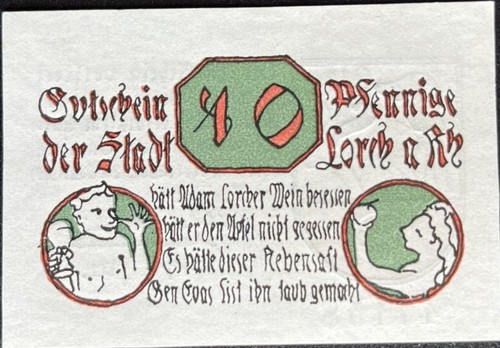 Gutschein 10 Pfennige
der Stadt Lorch a Rh
hätt Adam Lorcher Wein besessen
hätt er den Apfel nicht gegessen
Es hätte dieser Rebensaft
Gen Evas List ihn taub gemacht